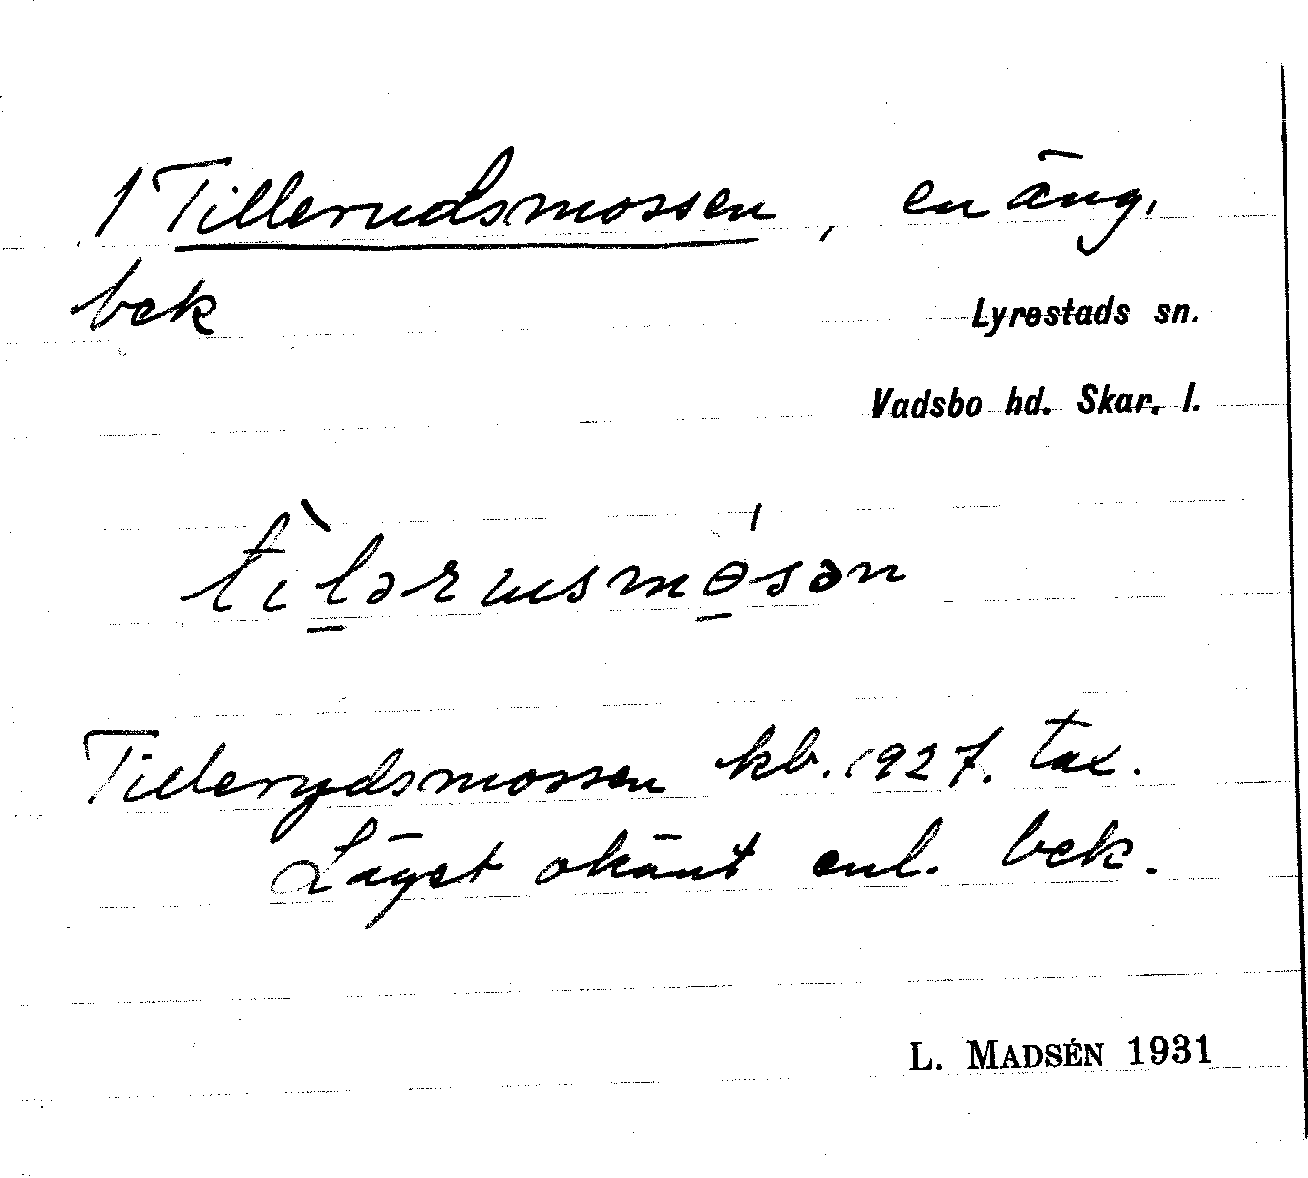 1 Tillerudsmossen, en äng.
bek
Lyrestads sn.
Vadsbo hd. Skar. l.
tìlərusmósən
Tillerydsmossen kb. 1927. tax.
Läget okänt enl. bek.
L. MADSÉN 1931